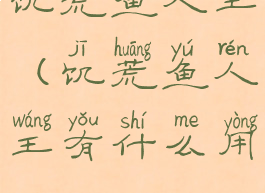 饥荒鱼人王
jī huāng yú rén
（饥荒鱼人
wáng yǒu shí me yòng
王有什么用